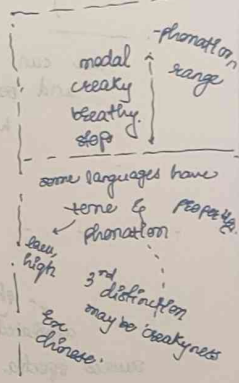 modal
creaky
breathy.
stop
-phonation
range
some languages have
tone &
phonation
low,
high
3rd
distinction
may be creakyness
Ex
chinese.